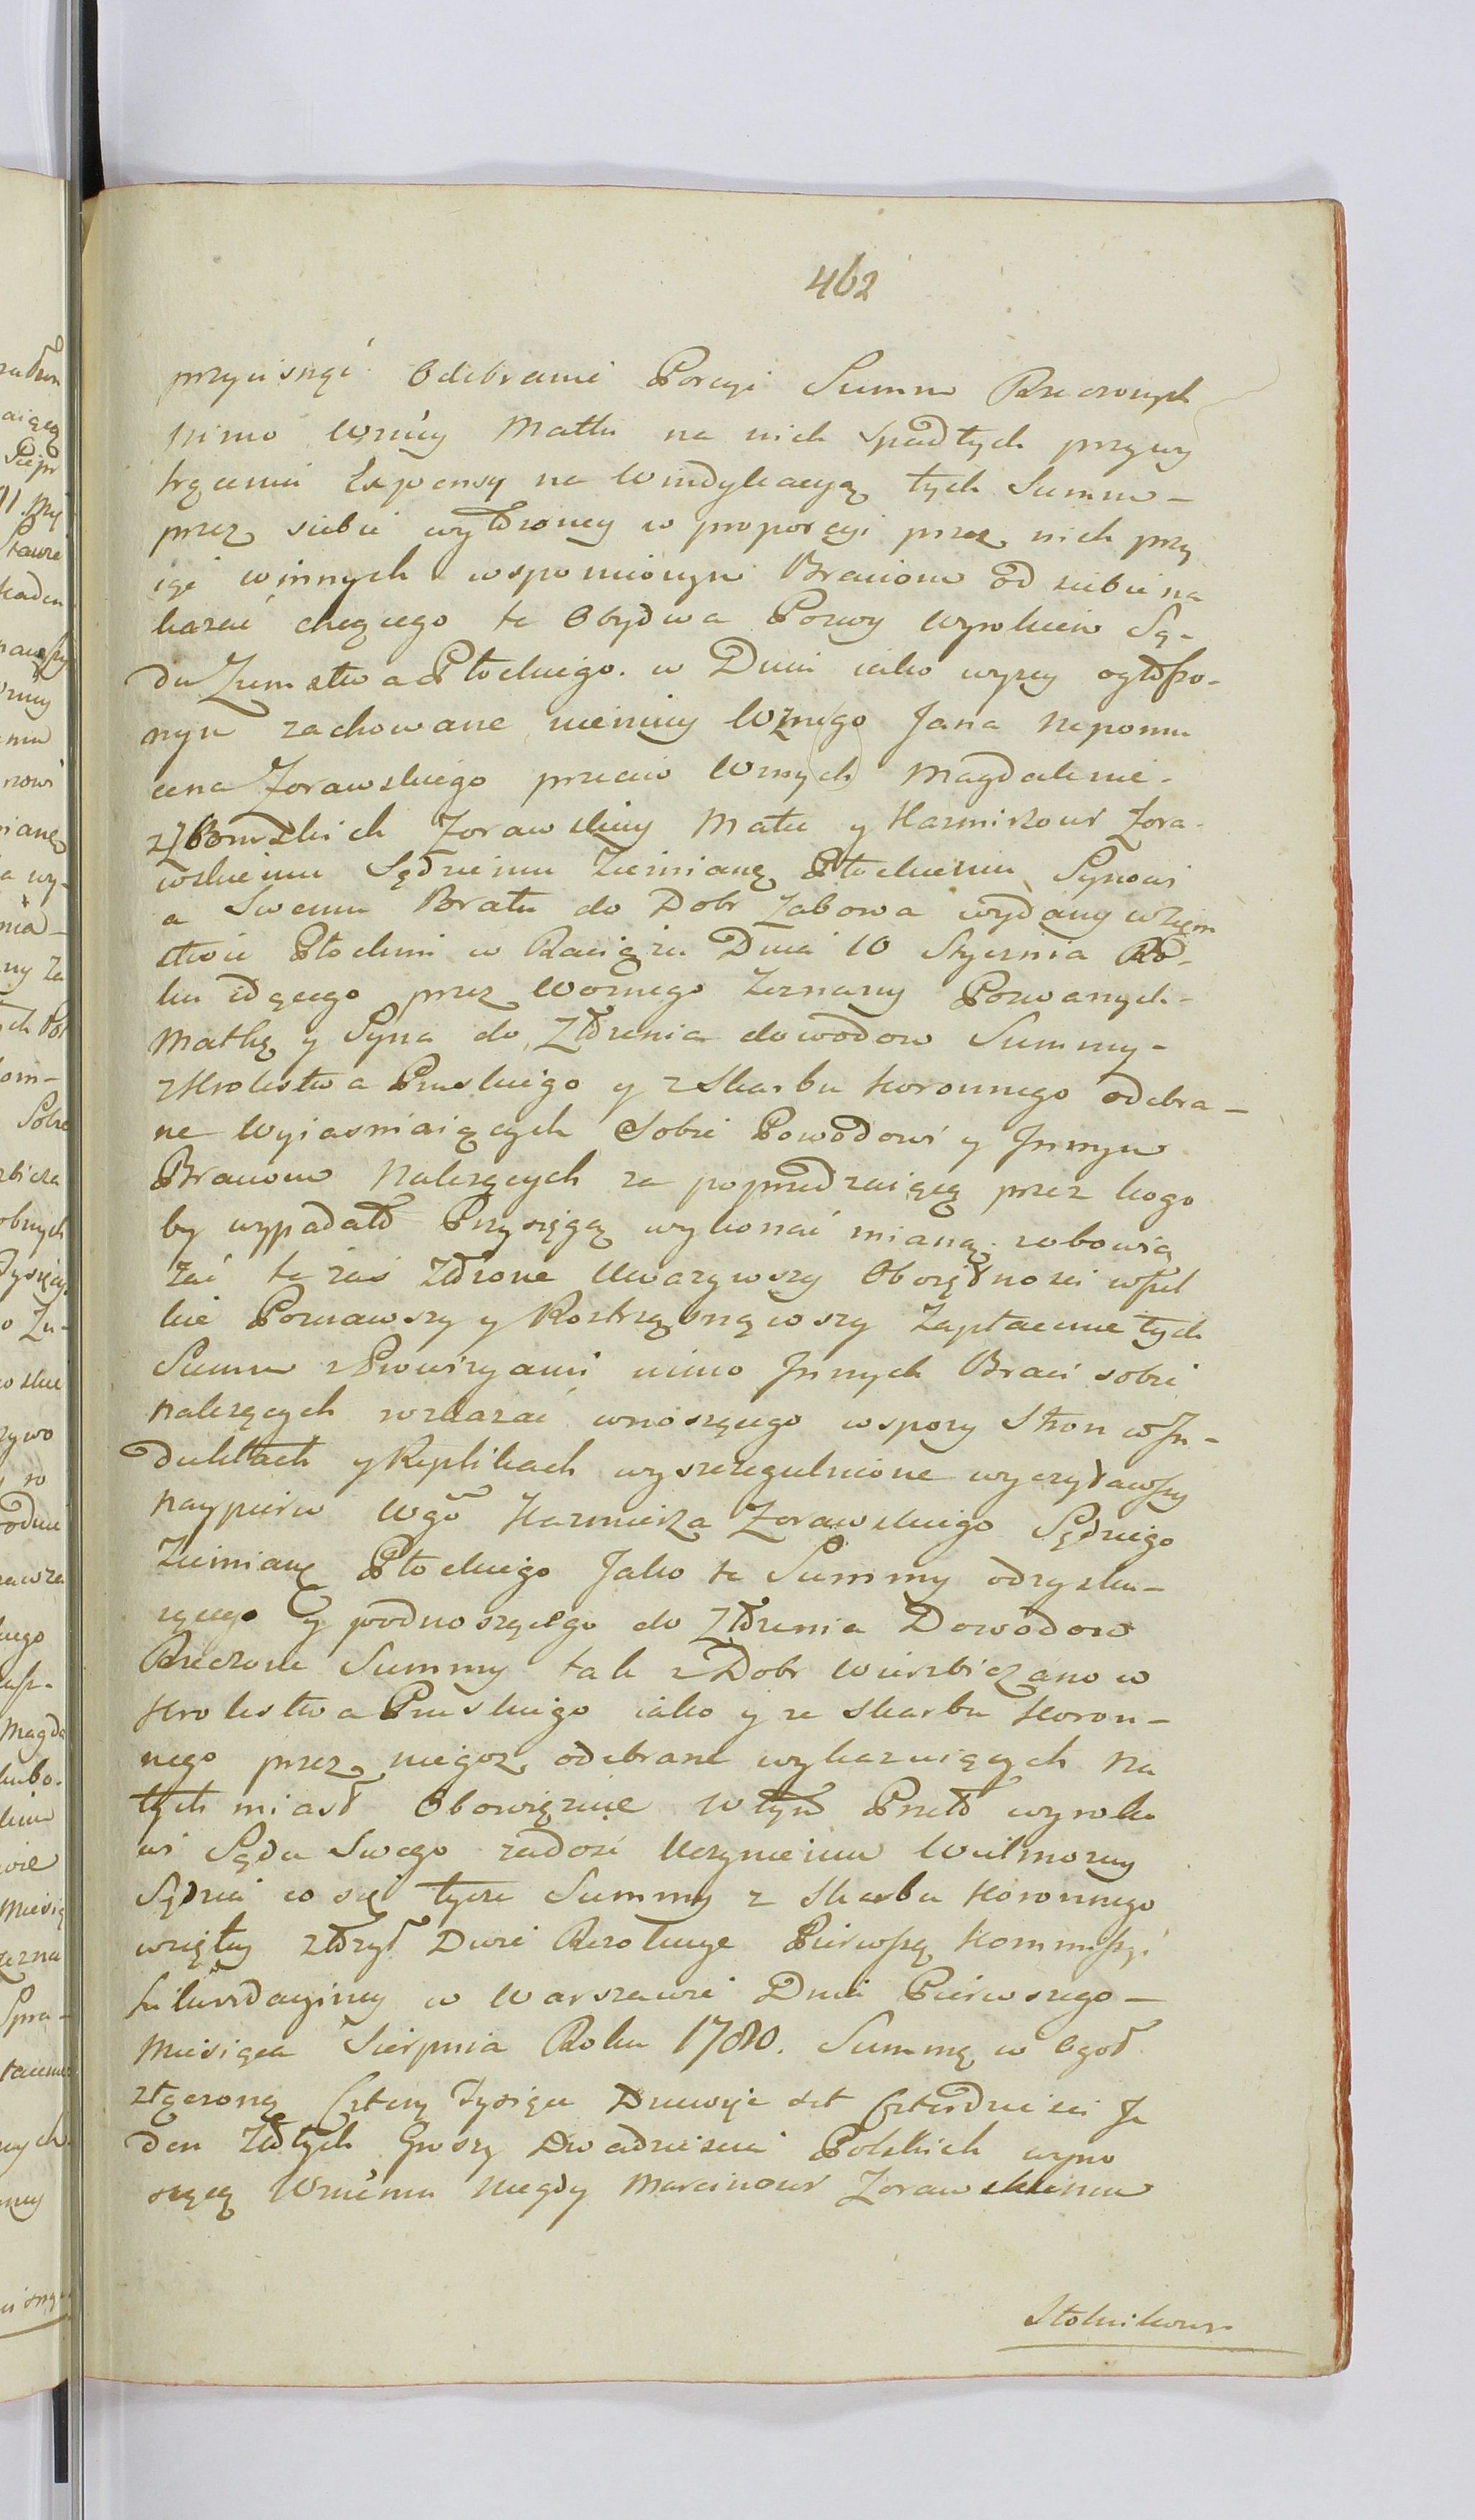 462
przycisnąć Odebranie Porcyi Summ Rzeczonych
nimo Wżney Matki na nich Spadłych przy wy
trąceniu Expensy na Windykacyą tych Summ-
przez siebie wyłożoney w proporcyi przez nich przy
iąć winnych wspomionym Braciom od siebie na
kazać chcącego te Obydwa Pozwy Wyrokiem Są-
du Ziemstwa Płockiego. w Dniu iako wyzey ogłoszo-
nym zachowane mieniey Wznego Jana Nepomu
cena Zorawskiego przeciw Wznych Magdalenie
z Zbomskich Zorawskiey Matce y Kazmirzowi Zora-
wskiemu Sędziemu Ziemianę Płockiemu Synowi
a Swemu Bratu do Dobr Zabowa wydany w Ziem
stwie Płockim w Raciążu Dnia 10 Stycznia Ro-
ku idącego przez Woznego Zeznany Pozwanych-
Matkę y Syna do Złożenia dowodow Summy-
z Krolestwa Pruskiego y z Skarbu Koronnego odebra-
ne Wyiasniaiących Sobie Powodowi y Innym
Braciom Nalezących za poprzedzaiącą przez kogo
by wypadało Przysięgą wykonać mianą. zobowią
zać te zaś Złożone Uwazywszy Oborządnosci wszel
kie Poznawszy y Roztrząsnąwszy Zapłacenie tych
Summ z Prowizyami nimo Innych Braci sobie
Nalezących rozkazać wnoszącego wspory Stron w In-
duktach y Replikach wyszczegulnione wyczytawszy
naypierw Wgo Kazmierza Zorawskiego Sędziego
Ziemianę Płockiego Jako te Summy odzysku-
iącego y podnoszącego do Złożenia Dowodow
Rzeczone Summy tak z Dobr Wierzbiczanow
Krolestwa Pruskiego iako y ze Skarbu Koron-
nego przez niegoz odebrane wykazuiących Na
tychmiast Obowięzuie W tym Przeto wyroko
wi Sądu Swego zadosć Uczynieniu Wielmozny
Sędzia co się tycze Summy z Skarbu Koronnego
wziętey złozył Dwie Rezolucye Pierwszą Kommissyi
Likwidacyiney w Warszawie Dnia Pierwszego-
Miesiąca Sierpnia Roku 1780. Summę w Ogoł
złączoną Cztery Tysiące Dziewięć set Czterdziesci Je
den Złotych Groszy Dwadziescia Polskich wyno
szącą Wznemu niegdy Marcinowi Zorawskiemu
Stolnikowi